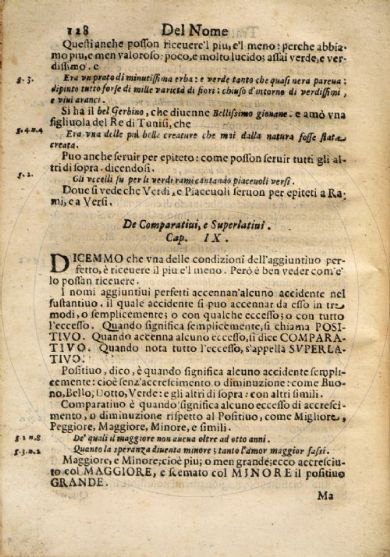 128 Del Nome
Questi anche posson riceuere'l piu, e'l meno: perche abbia-
mo piu, e men valoroso: poco, e molto lucido; assai verde, e ver-
dissimo. e
g. 3. Era vn prato di minutissima erba: e verde tanto che quasi nera pareua:
dipinto tutto forse di mille varietà di fiori: chiuso d'intorno di verdissimi,
e viui aranci.
Si ha il bel Gerbino, che diuenne Bellissimo giouane. e amò vna
figliuola del Re di Tunisi, che
g. 4. n. 4 Era vna delle piu belle creature che mai dalla natura fosse stata
creata.
Puo anche seruir per epiteto: come posson seruir tutti gli al-
tri di sopra. dicendosi.
g. 2. Gli vccelli su per li verdi rami cantando piaceuoli versi.
Doue si vede che Verdi, e Piaceuoli seruon per epiteti a Ra-
mi, e a Versi.
De Comparatiui, e Superlatiui.
Cap. IX.
DICEMMO che vna delle condizioni dell'aggiuntiuo per-
fetto, è riceuere il piu e'l meno. Però è ben veder com'e'
lo possan riceuere.
I nomi aggiuntiui perfetti accennan'alcuno accidente nel
sustantiuo. il quale accidente si puo accennar da esso in tre
modi, o semplicemente; o con qualche eccesso; o con tutto
l'eccesso. Quando significa semplicemente, si chiama POSI-
TIVO. Quando accenna alcuno eccesso, si dice COMPARA-
TIVO. Quando nota tutto l'eccesso, s'appella SVPERLA-
TIVO.
Positiuo, dico, è quando significa alcuno accidente sempli-
cemente: cioè senz'accrescimento o diminuzione: come Buo-
no, Bello, Dotto, Verde: e gli altri di sopra: con altri simili.
Comparatiuo è quando significa alcuno eccesso di accresci-
mento, o diminuzione rispetto al Positiuo, come Migliore,
Peggiore, Maggiore, Minore, e simili.
g. 2 n. 8 De' quali il maggiore non aueua oltre ad otto anni.
g. 3. n. 2 Quanto la speranza diuenta minore; tanto l'amor maggior fassi.
Maggiore, e Minore; cioè piu; o men grande; ecco accresciu-
to col MAGGIORE, e scemato col MINORE il positiuo
GRANDE.
Ma